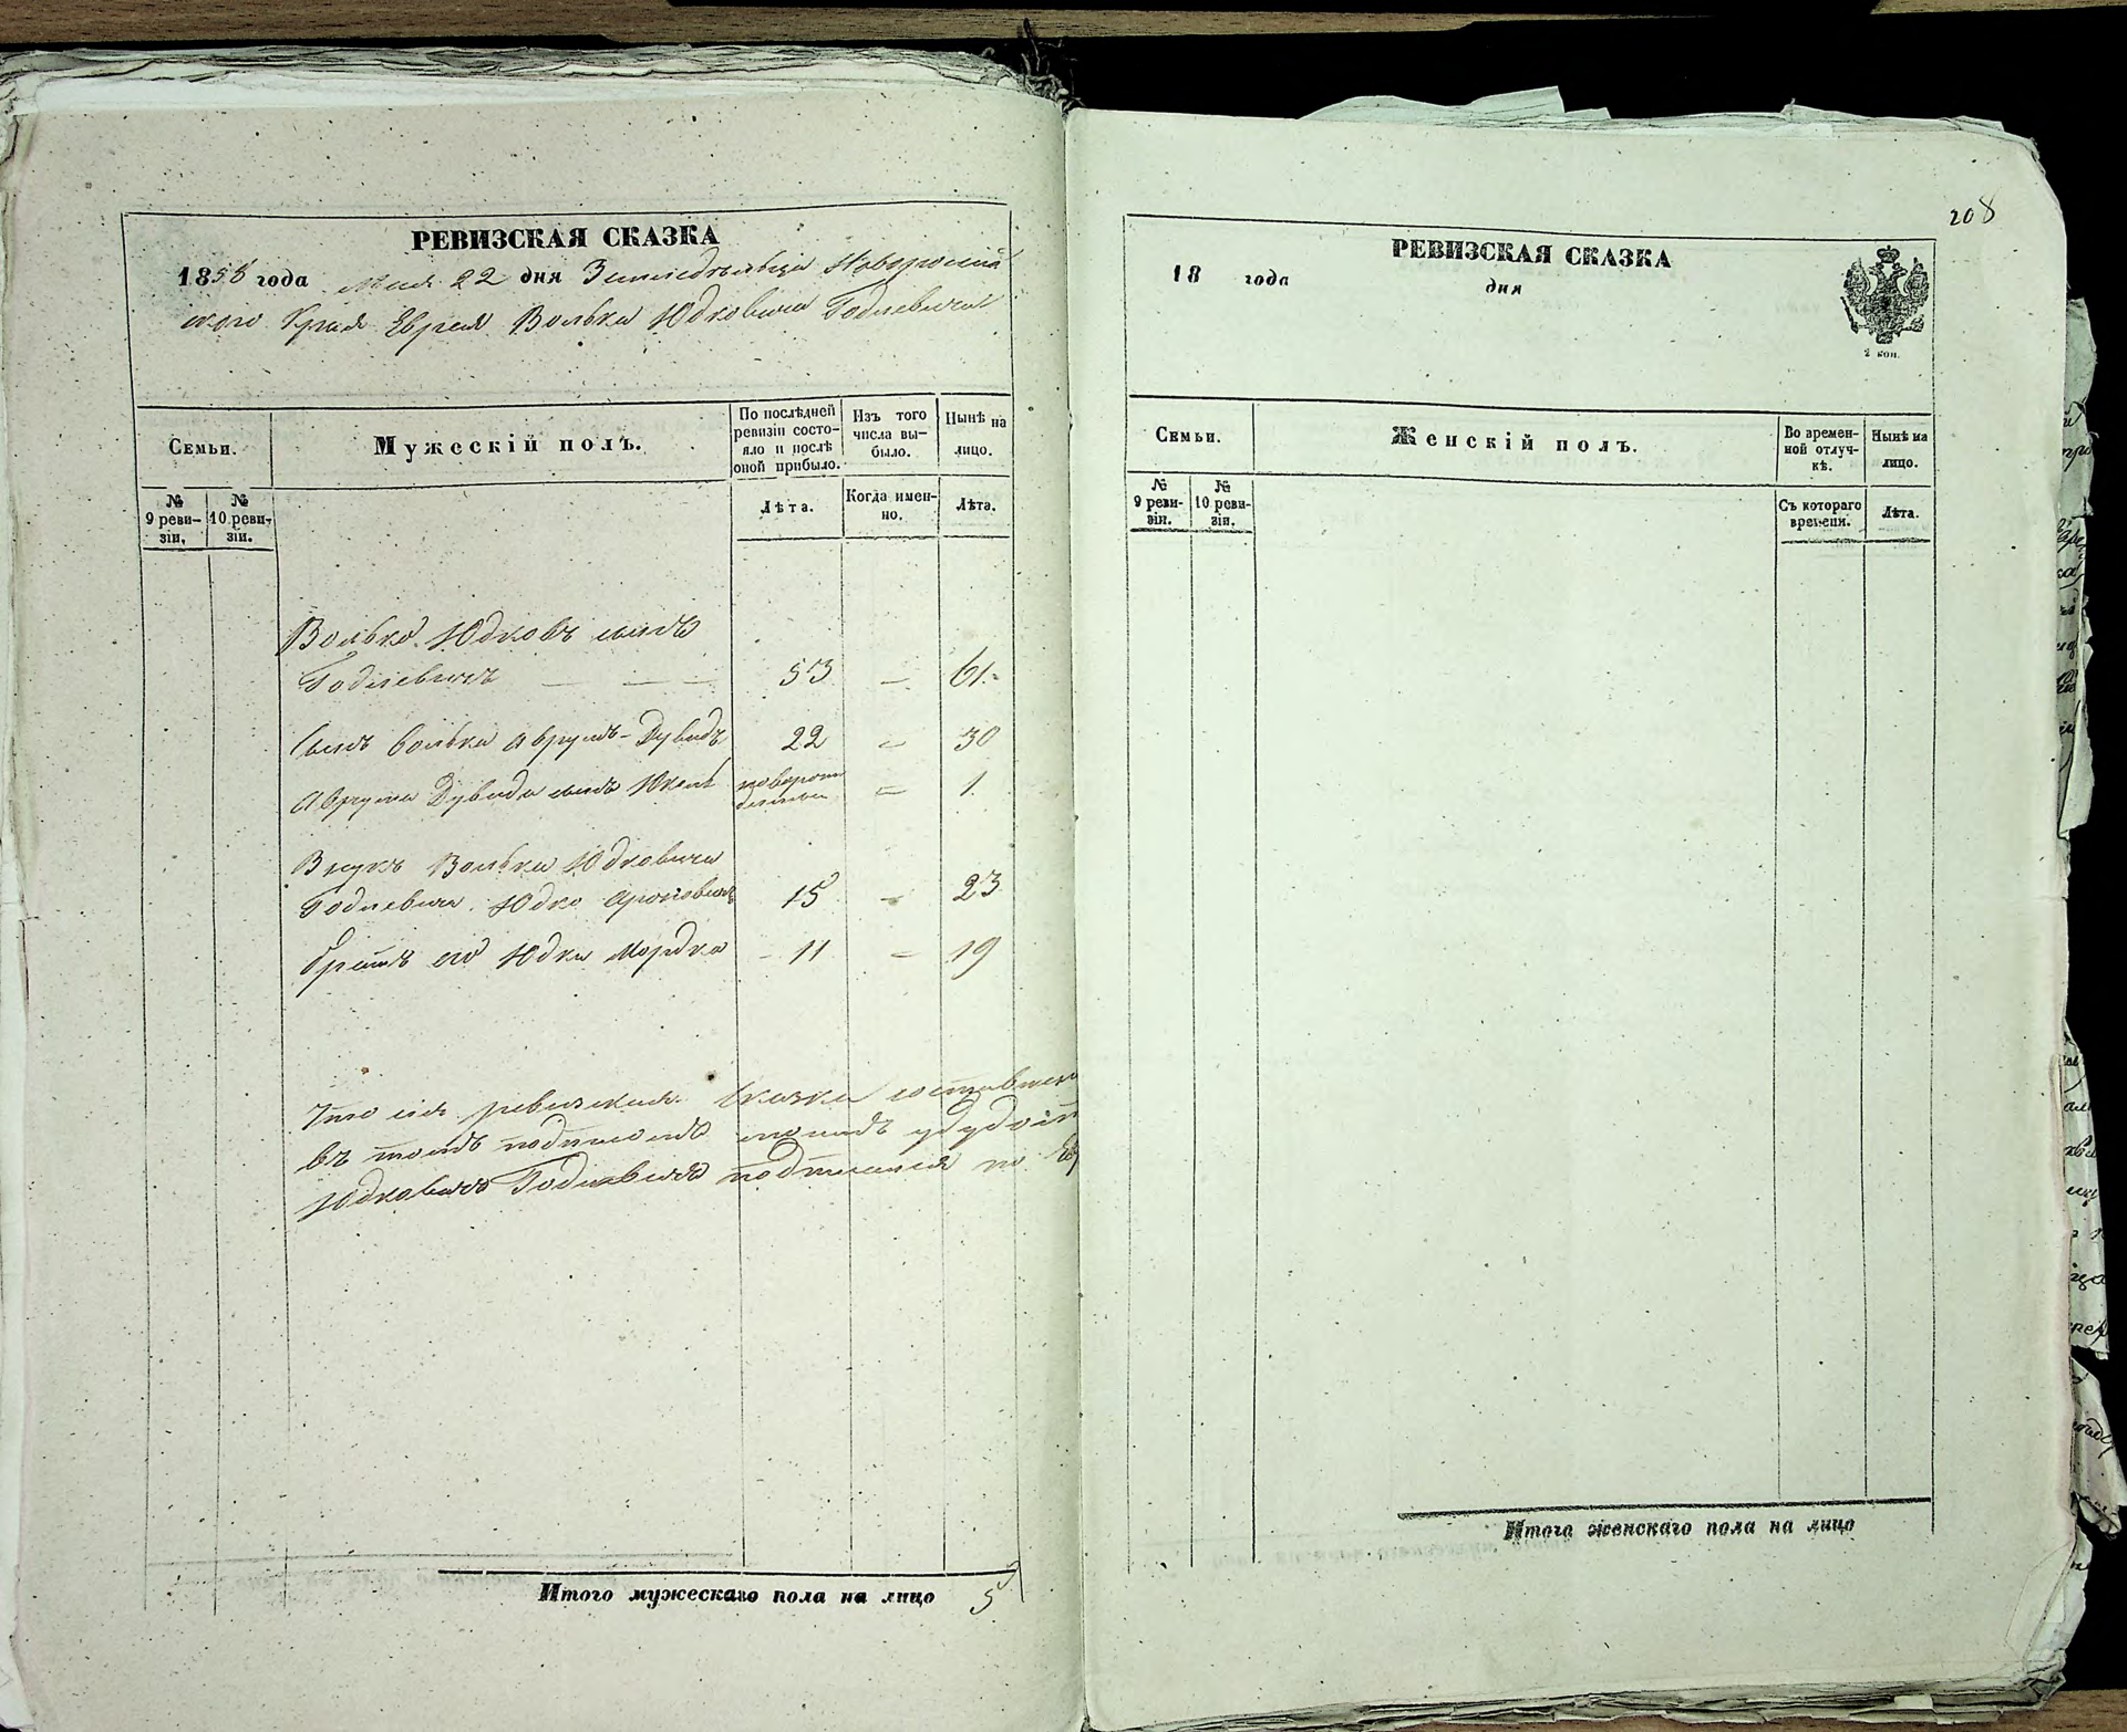 РЕВИЗСКАЯ СКАЗКА
1858 года Мая 22 дня Земледѣльца Новороссій
ского Края Еврея Волька Юдковича Годлевича
Семьи.
Мужескій полъ.
По послѣдней ревизіи состо-
яло и послѣ
оной прибыло.
Изъ того
числа вы-
было.
Нынѣ на
лицо.
№
9 реви-
зіи.
№
10 реви-
зіи.
Лѣта.
Когда имен-
но.
Лѣта.
Волько Юдковъ сынъ
Годлевичъ — — — 53 — 61.
Сынъ Волька Аврумъ-Дувидъ 22 — 30
Аврума Дувида сынъ Юкель новорож
денный — 1.
Внукъ Волька Юдковича
Годлевича Юдко Ароновичъ 15 — 23
Братъ его Юдка Мордко — 11 — 19
Что сія ревизская сказка составлена
въ томъ подписомъ моимъ
Юдковичъ Годлевичъ подписался по
Итого мужескаго пола на лицо 5
208
РЕВИЗСКАЯ СКАЗКА
18 года дня
2 коп.
Семьи.
Женскій полъ.
Во времен-
ной отлуч-
кѣ.
Нынѣ на
лицо.
№
9 реви-
зіи.
№
10 реви-
зіи.
Съ котораго
времени.
Лѣта.
Итого женскаго пола на лицо